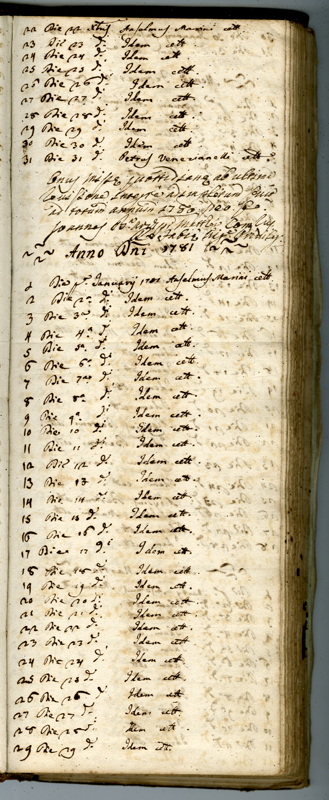 22 Die 22 Anselmus Marini cett.
23 Die 23 d. Idem cett
24 Die 24 d. Idem cett
25 Die 25 d. Idem cett
26 Die 26 d. Idem cett.
27 Die 27 d. Idem cett.
28 Die 28 d. Idem cett.
29 Die 29 d. Idem cett
30 Die 30 d. Idem cett.
31 Die 31 d. Petrus cett.
Onus
integre
ad totum annum 1780
Joannes
Anno Dni 1781
1 Die pa. January 1781 Anselmus Marini cett.
2 Die 2a d. Idem cett.
3 Die 3a d. Idem cett.
4 Die 4a d. Idem cett.
5 Die 5a d. Idem cett.
6 Die 6a d. Idem cett.
7 Die 7ma d. Idem cett.
8 Die 8a d. Idem cett.
9 Die 9a d. Idem cett.
10 Die 10 d. Idem cett.
11 Die 11 d. Idem cett.
12 Die 12 d. Idem cett.
13 Die 13 d. Idem cett.
14 Die 14 d. Idem cett.
15 Die 15 d. Idem cett.
16 Die 16 d. Idem cett.
17 Die 17 d. Idem cett.
18 Die 18 d. Idem cett.
19 Die 19 d. Idem cett.
20 Die 20 d. Idem cett.
21 Die 21 d. Idem cett.
22 Die 22 d. Idem cett.
23 Die 23 d. Idem cett.
24 Die 24 d. Idem cett.
25 Die 25 d. Idem cett.
26 Die 26 d. Idem cett
27 Die 27 d. Idem cett
28 Die 28 d. Idem cett.
29 Die 29 d. Idem cett.